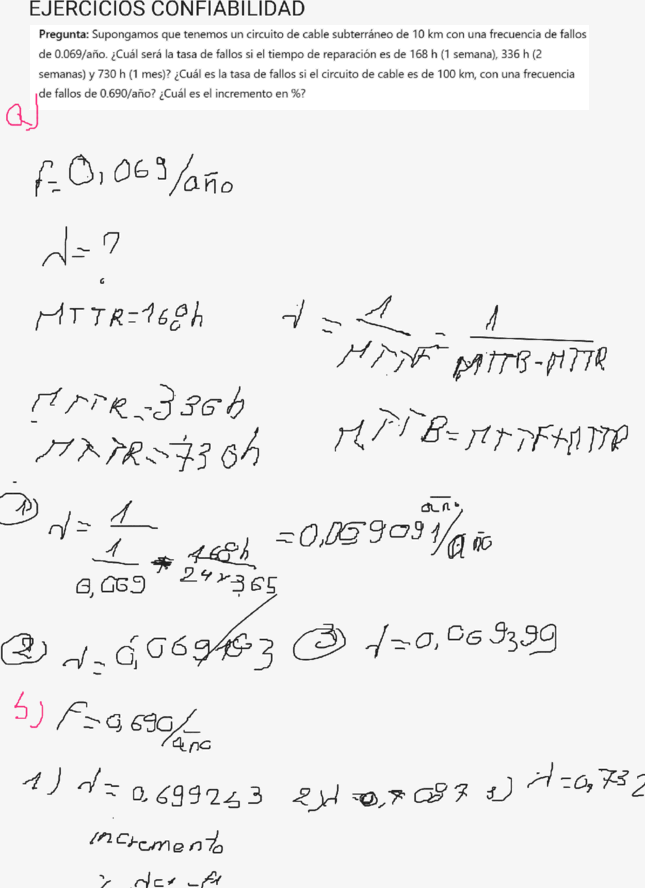 EJERCICIOS CONFIABILIDAD
Pregunta: Supongamos que tenemos un circuito de cable subterráneo de 10 km con una frecuencia de fallos
de 0.069/año. ¿Cuál será la tasa de fallos si el tiempo de reparación es de 168 h (1 semana), 336 h (2
semanas) y 730 h (1 mes)? ¿Cuál es la tasa de fallos si el circuito de cable es de 100 km, con una frecuencia
de fallos de 0.690/año? ¿Cuál es el incremento en %?
a)
f=0,069/año
λ=?
MTTR=168h λ = 1/MTTF = 1/MTTB-MTTR
MTTR=336h
MTTR=730h MTTB=MTTF+MTTR
1) λ = 1/(1/0,069 - 168h/24x365) =0,069091/año
2) λ=0,069183 3) λ=0,069399
b) F=0,690/año
1) λ=0.699253 2) λ=0,7087 3) λ=0,732
incremento